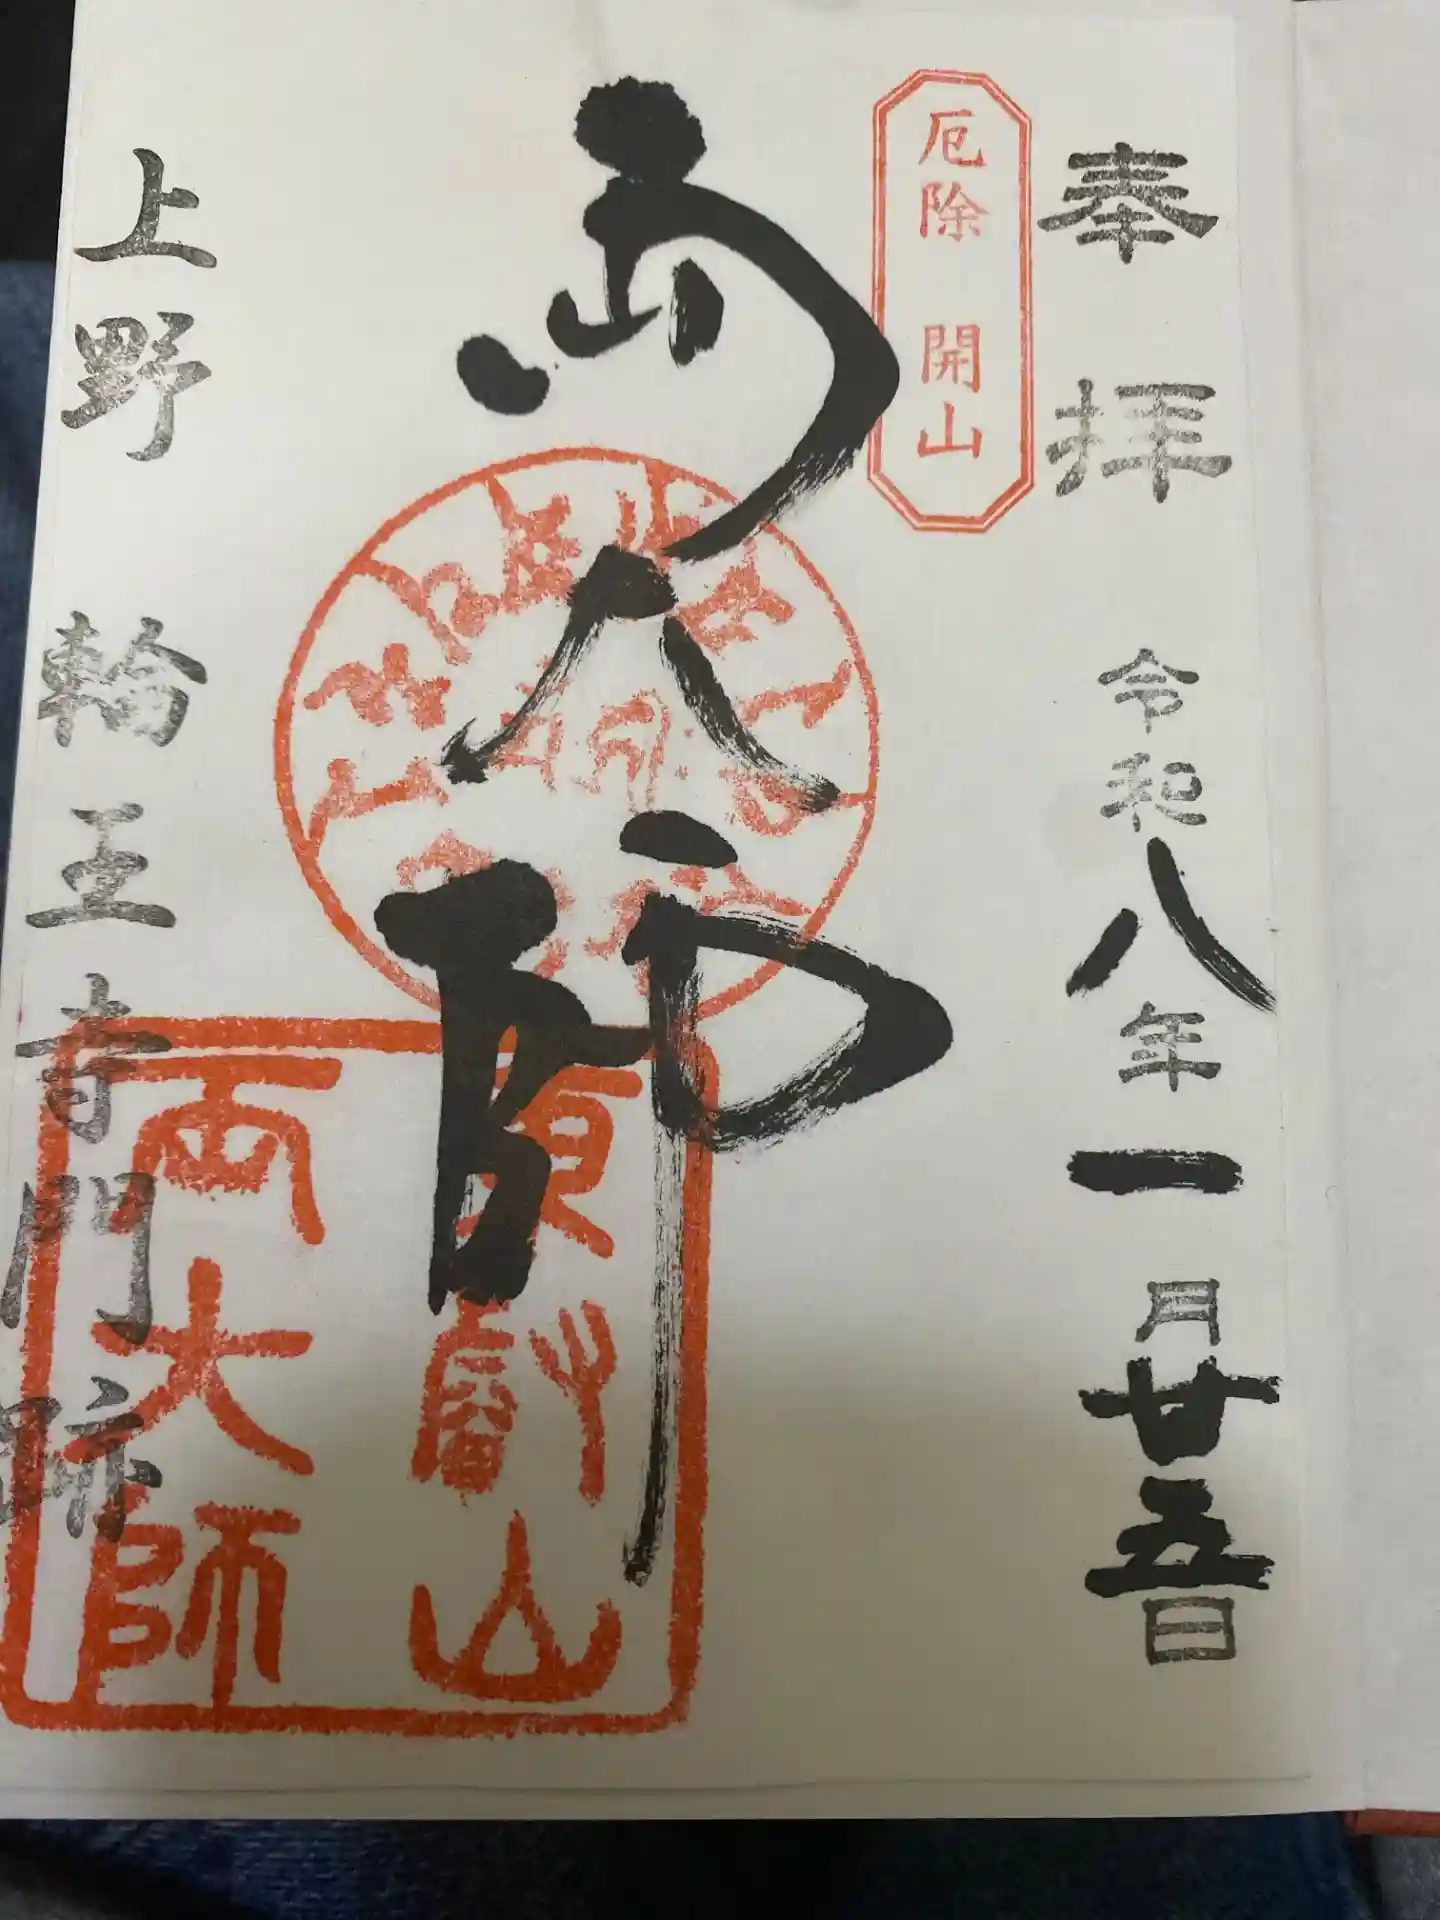 奉拝 令和八年一月廿五日
厄除 開山
両大師
東叡山
両大師
上野 輪王寺門跡